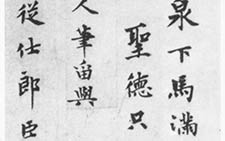 泉下馬滿
聖德只
人筆留與
從仕郎臣